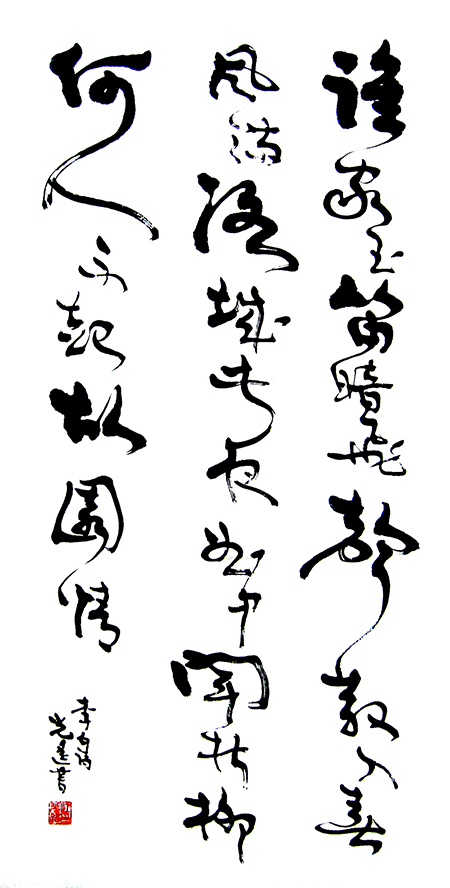 誰家玉笛暗飛聲散入春
風滿洛城此夜曲中聞折柳
何人不起故園情
李白詩
書